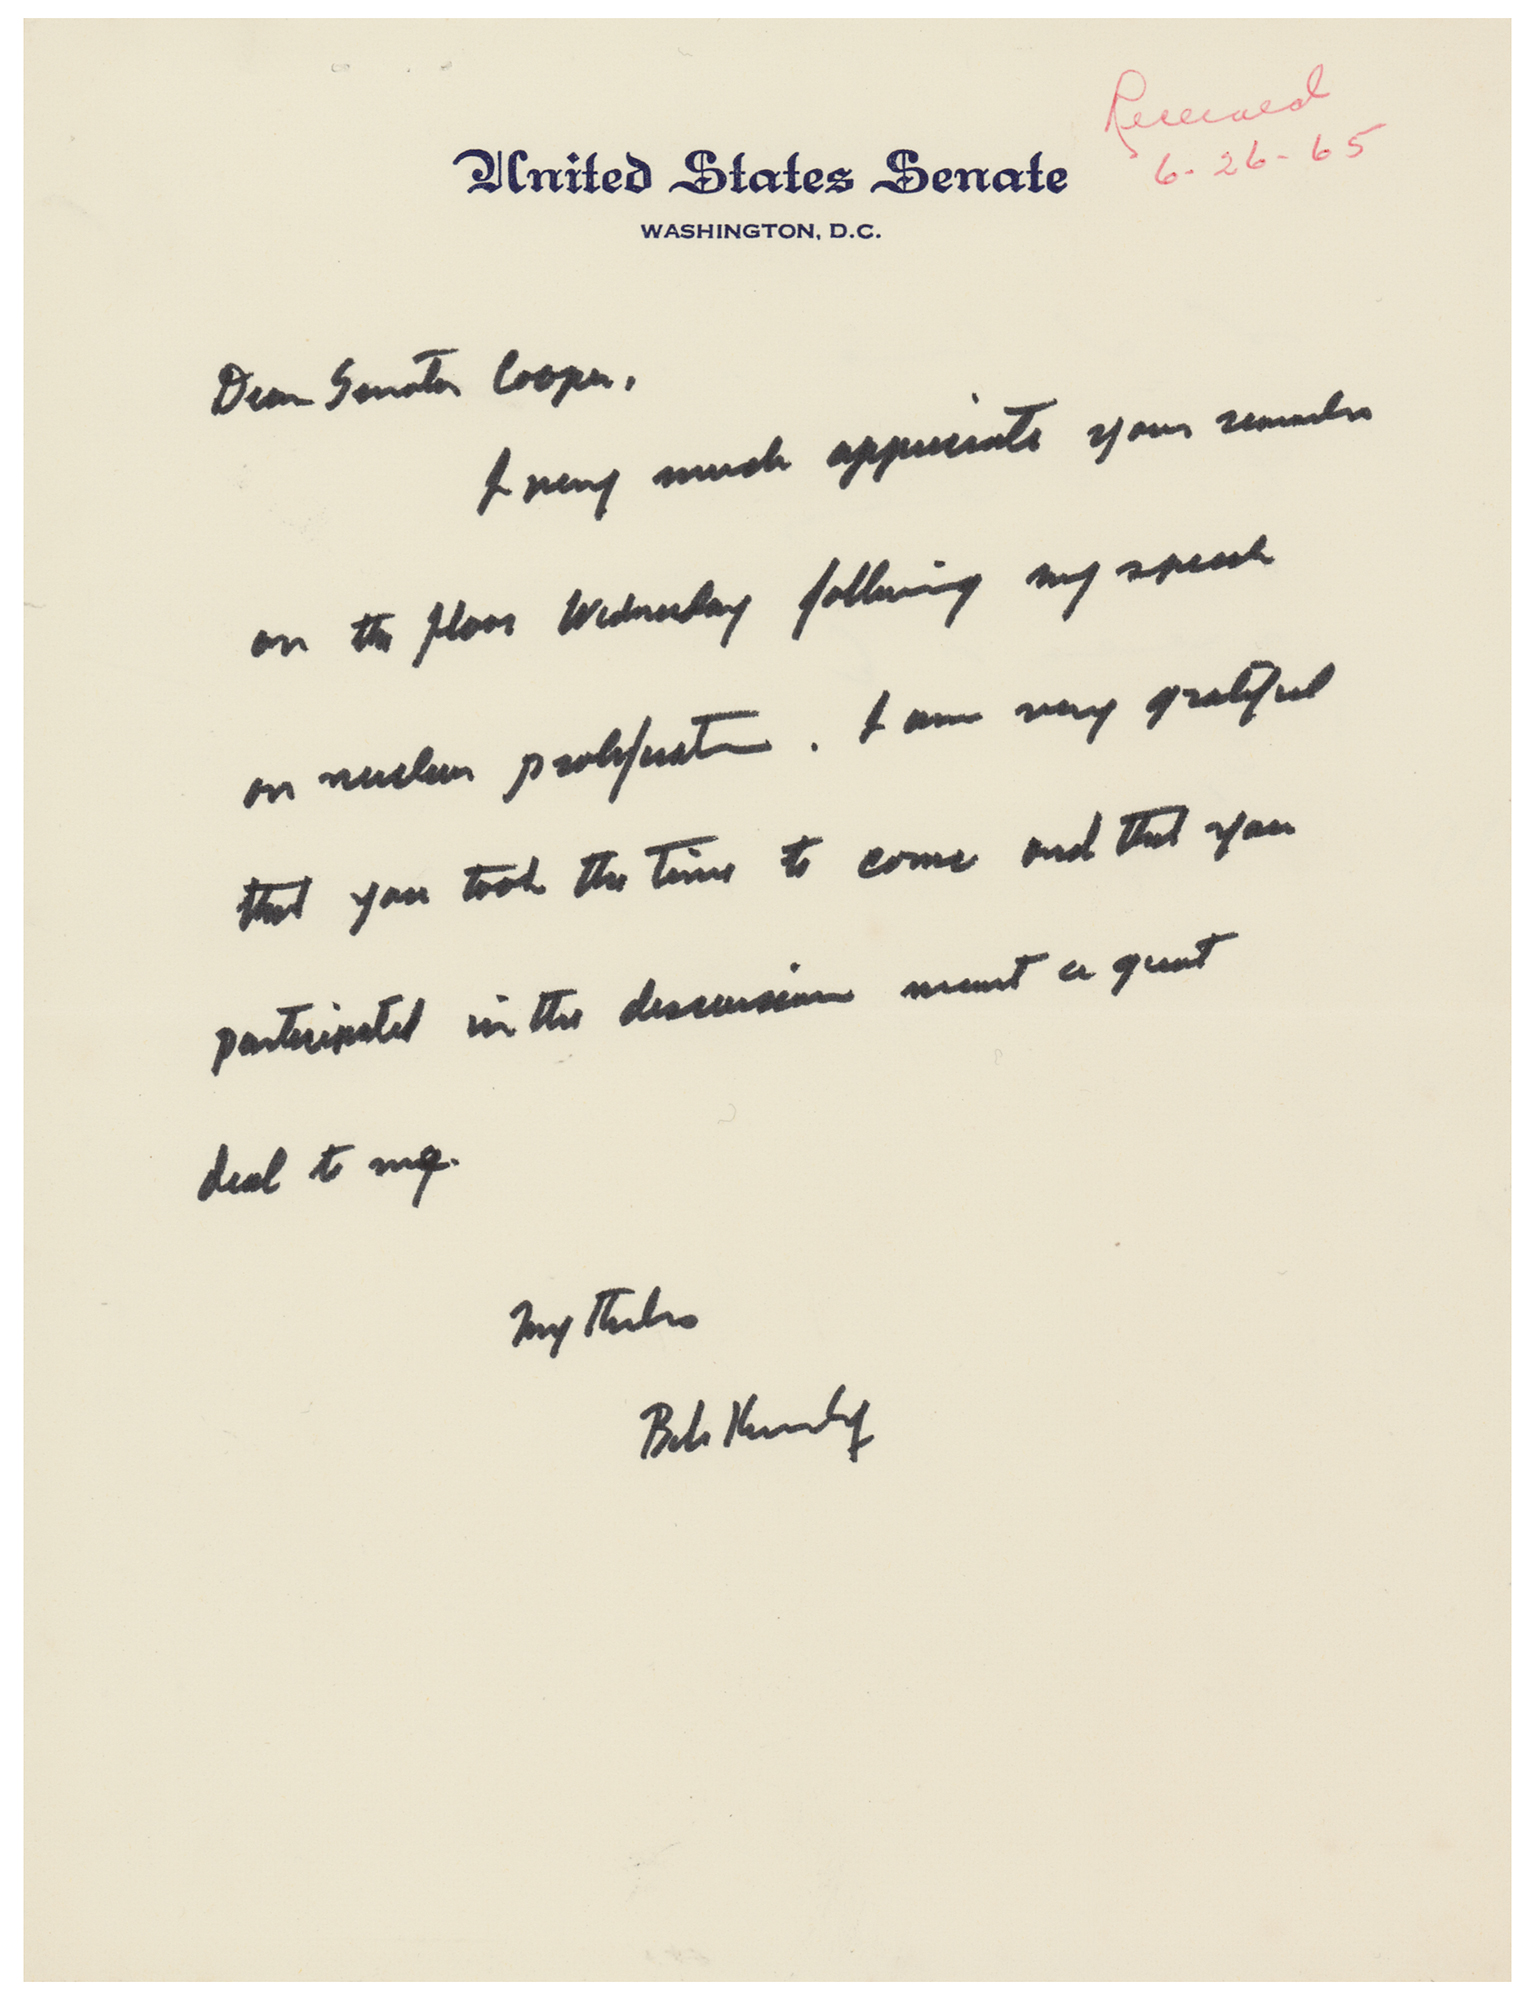 Received
6-26-65
United States Senate
WASHINGTON, D.C.
Dear Senator Cooper,
I very much appreciate your remarks
on the floor Wednesday following my speech
on nuclear proliferation. I am very grateful
that you took the time to come and that you
participated in the discussion meant a great
deal to me.
My thanks
Bob Kennedy